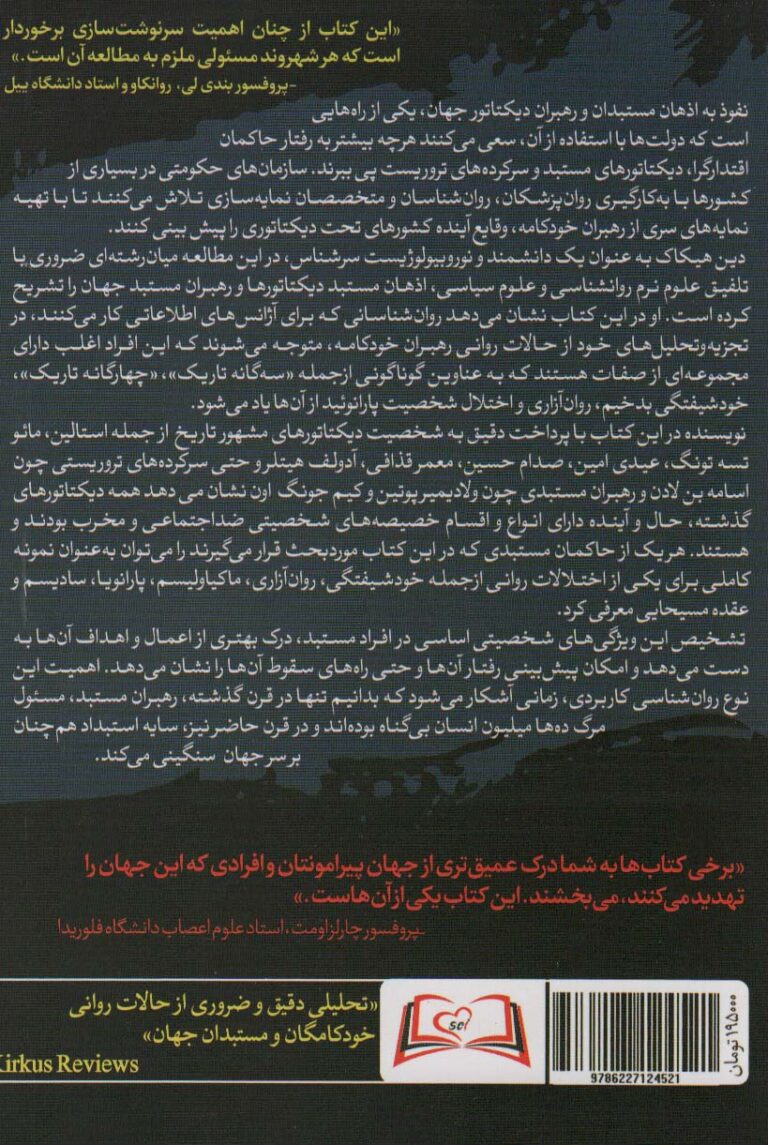 «این کتاب از چنان اهمیت سرنوشت‌سازی برخوردار
است که هر شهروند مسئولی ملزم به مطالعه آن است.»
-پروفسور بندی لی، روانکاو و استاد دانشگاه ییل
نفوذ به اذهان مستبدان و رهبران دیکتاتور جهان، یکی از راه‌هایی
است که دولت‌ها با استفاده از آن، سعی می‌کنند هرچه بیشتر به رفتار حاکمان
اقتدارگرا، دیکتاتورهای مستبد و سرکرده‌های تروریست پی ببرند. سازمان‌های حکومتی در بسیاری از
کشورها با به‌کارگیری روان‌پزشکان، روان‌شناسان و متخصصان نمایه‌سازی تلاش می‌کنند تا با تهیه
نمایه‌های سری از رهبران خودکامه، وقایع آینده کشورهای تحت دیکتاتوری را پیش بینی کنند.
دین هیکاک به عنوان یک دانشمند و نوروبیولوژیست سرشناس، در این مطالعه میان‌رشته‌ای ضروری با
تلفیق علوم نرم روانشناسی و علوم سیاسی، اذهان مستبد دیکتاتورها و رهبران مستبد جهان را تشریح
کرده است. او در این کتاب نشان می‌دهد روان‌شناسانی که برای آژانس‌های اطلاعاتی کار می‌کنند، در
تجزیه‌وتحلیل‌های خود از حالات روانی رهبران خودکامه، متوجه می‌شوند که این افراد اغلب دارای
مجموعه‌ای از صفات هستند که به عناوین گوناگونی ازجمله «سه‌گانه تاریک»، «چهارگانه تاریک»،
خودشیفتگی بدخیم، روان‌آزاری و اختلال شخصیت پارانوئید از آن‌ها یاد می‌شود.
نویسنده در این کتاب با پرداخت دقیق به شخصیت دیکتاتورهای مشهور تاریخ از جمله استالین، مائو
تسه تونگ، عیدی امین، صدام حسین، معمر قذافی، آدولف هیتلر و حتی سرکرده‌های تروریستی چون
اسامه بن لادن و رهبران مستبدی چون ولادیمیر پوتین و کیم جونگ اون نشان می دهد همه دیکتاتورهای
گذشته، حال و آینده دارای انواع و اقسام خصیصه‌های شخصیتی ضداجتماعی و مخرب بودند و
هستند. هر یک از حاکمان مستبدی که در این کتاب موردبحث قرار می‌گیرند را می‌توان به‌عنوان نمونه
کاملی برای یکی از اختلالات روانی ازجمله خودشیفتگی، روان‌آزاری، ماکیاولیسم، پارانویا، سادیسم و
عقده مسیحایی معرفی کرد.
تشخیص این ویژگی‌های شخصیتی اساسی در افراد مستبد، درک بهتری از اعمال و اهداف آن‌ها به
دست می‌دهد و امکان پیش‌بینی رفتار آن‌ها و حتی راه‌های سقوط آن‌ها را نشان می‌دهد. اهمیت این
نوع روان‌شناسی کاربردی، زمانی آشکار می‌شود که بدانیم تنها در قرن گذشته، رهبران مستبد، مسئول
مرگ ده‌ها میلیون انسان بی‌گناه بوده‌اند و در قرن حاضر نیز، سایه استبداد هم چنان
بر سر جهان سنگینی می‌کند.
«برخی کتاب‌ها به شما درک عمیق‌تری از جهان پیرامونتان و افرادی که این جهان را
تهدید می‌کنند، می‌بخشند. این کتاب یکی از آن هاست.»
-پروفسور چارلز اومت، استاد علوم اعصاب دانشگاه فلوریدا
«تحلیلی دقیق و ضروری از حالات روانی
خودکامگان و مستبدان جهان»
Kirkus Reviews
sci
۱۹۵۰۰۰ تومان
9786227124521